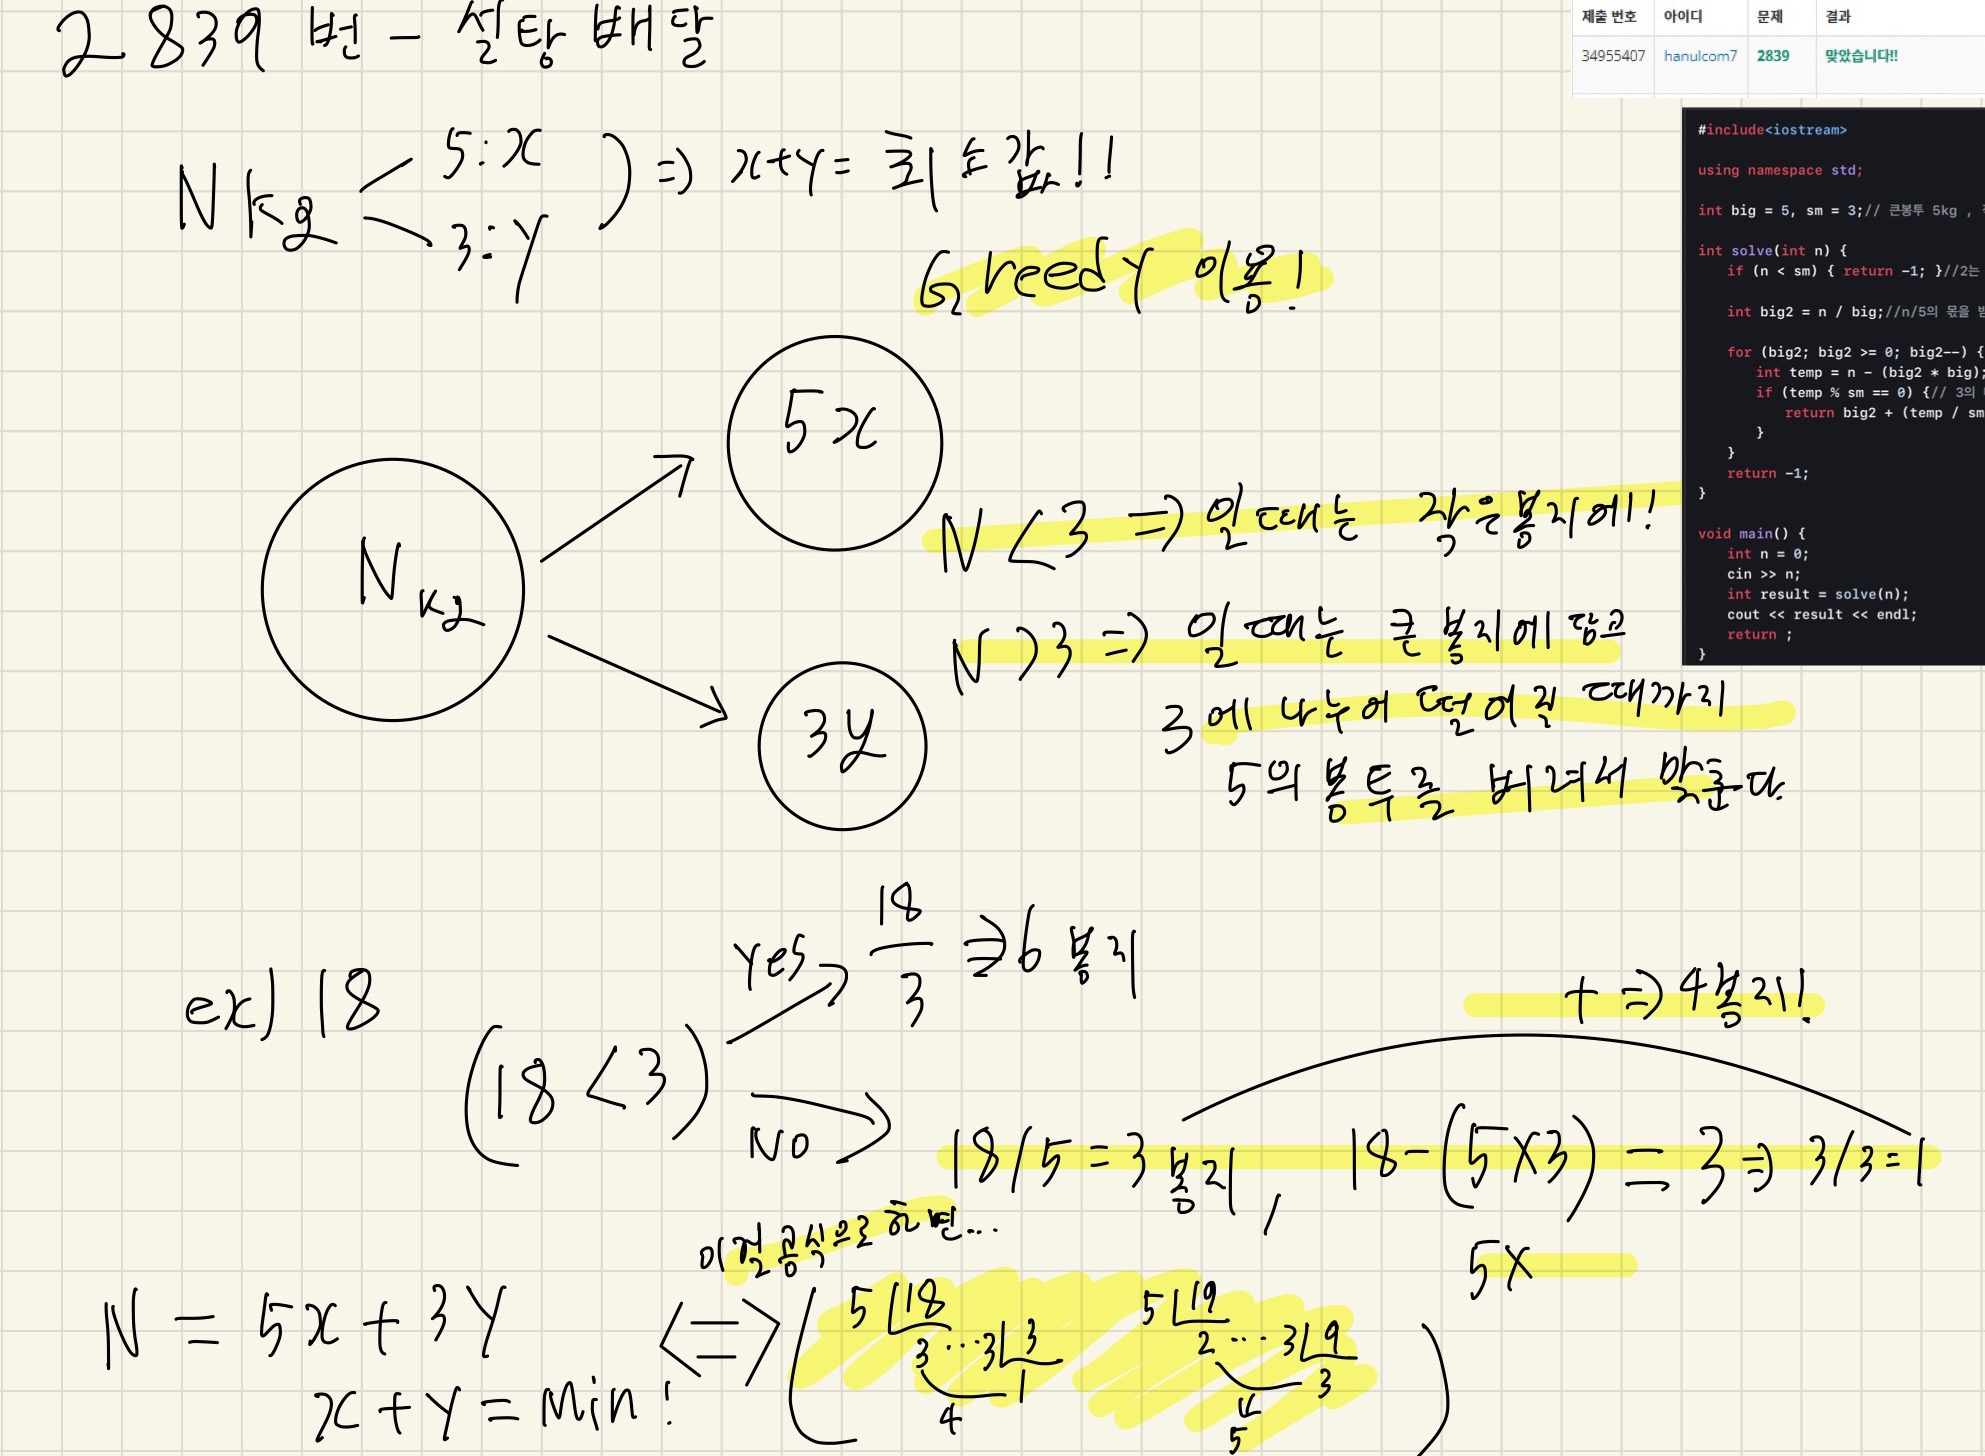 2839번 - 설탕 배달
제출 번호 아이디 문제 결과
34955407 hanulcom7 2839 맞았습니다!!
Nkg
5:x
3:y
=> x+y= 최소값!!
Greedy 이용!
#include<iostream>
using namespace std;
int big = 5, sm = 3;// 큰봉투 5kg ,
int solve(int n) {
if (n < sm) { return -1; }//2는
int big2 = n / big;//n/5의 몫을
for (big2; big2 >= 0; big2--) {
int temp = n - (big2 * big);
if (temp % sm == 0) {// 3의
return big2 + (temp / sm
}
}
return -1;
}
void main() {
int n = 0;
cin >> n;
int result = solve(n);
cout << result << endl;
return ;
}
5x
N kg
3y
N < 3 => 일때는 작은봉지에!
N > 3 => 일때는 큰 봉지에 담고
3에 나누어 떨어질 때까지
5의 봉투를 버려서 맞춘다.
ex) 18
(18 < 3)
yes
18
3
=> 6 봉지
NO
18/5 = 3 봉지, 18-(5x3) = 3 => 3/3 = 1
+ => 4봉지!
5x
이걸 공식으로 하면...
N = 5x + 3y
x+y = Min!
<=>
5 18
3 ... 3 3
1
4
5 19
2 ... 3 9
3
5